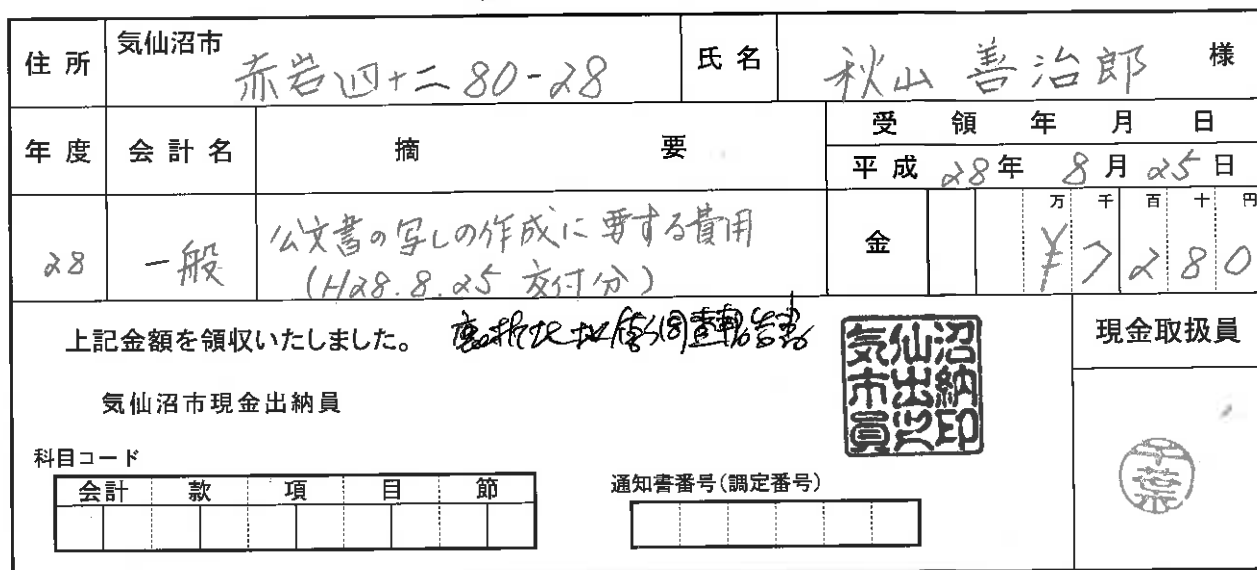 住所 気仙沼市 赤岩四十二80-28 氏名 秋山 善治郎 様
年度 会計名 摘要 受領年月日
平成 28年 8月 25日
28 一般 公文書の写しの作成に要する費用 金 万 千 百 十 円
(H28.8.25 交付分) ¥7280
上記金額を領収いたしました。 調査報告書
現金取扱員
気仙沼市現金出納員
気仙沼市出納員之印
千葉
科目コード
会計 款 項 目 節
通知書番号(調定番号)